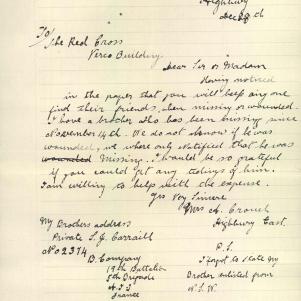 Highbury
Dec 28th
To/
The Red Cross
Verco Building.
Dear Sir or Madam
Having noticed
in the paper that you will keep any one
find their friends, when missing or wounded.
I have a brother who has been missing since
November 14th. We do not know if he was
wounded, we where only notified that he was
wounded Missing. I would be so grateful
if you could get any tidings of him.
I am willing to help with the expense.
Yrs Vry Sincere
Mrs A. Crouch
Highbury East.
My Brothers address
Private S. J. Carraill
No 2374
B. Company
19th Battalion
5th Brigade
A I F
France
P.S.
I forgot to state my
Brother enlisted from
N. S. W.